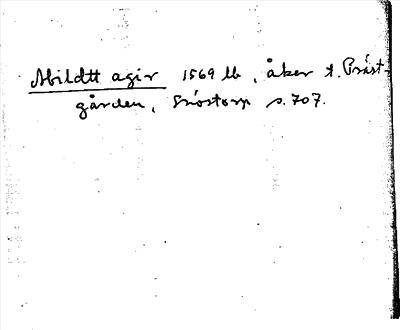 Abildtt agir 1569 lb, åker t. Präst-
gården, Snöstorp s. 707.